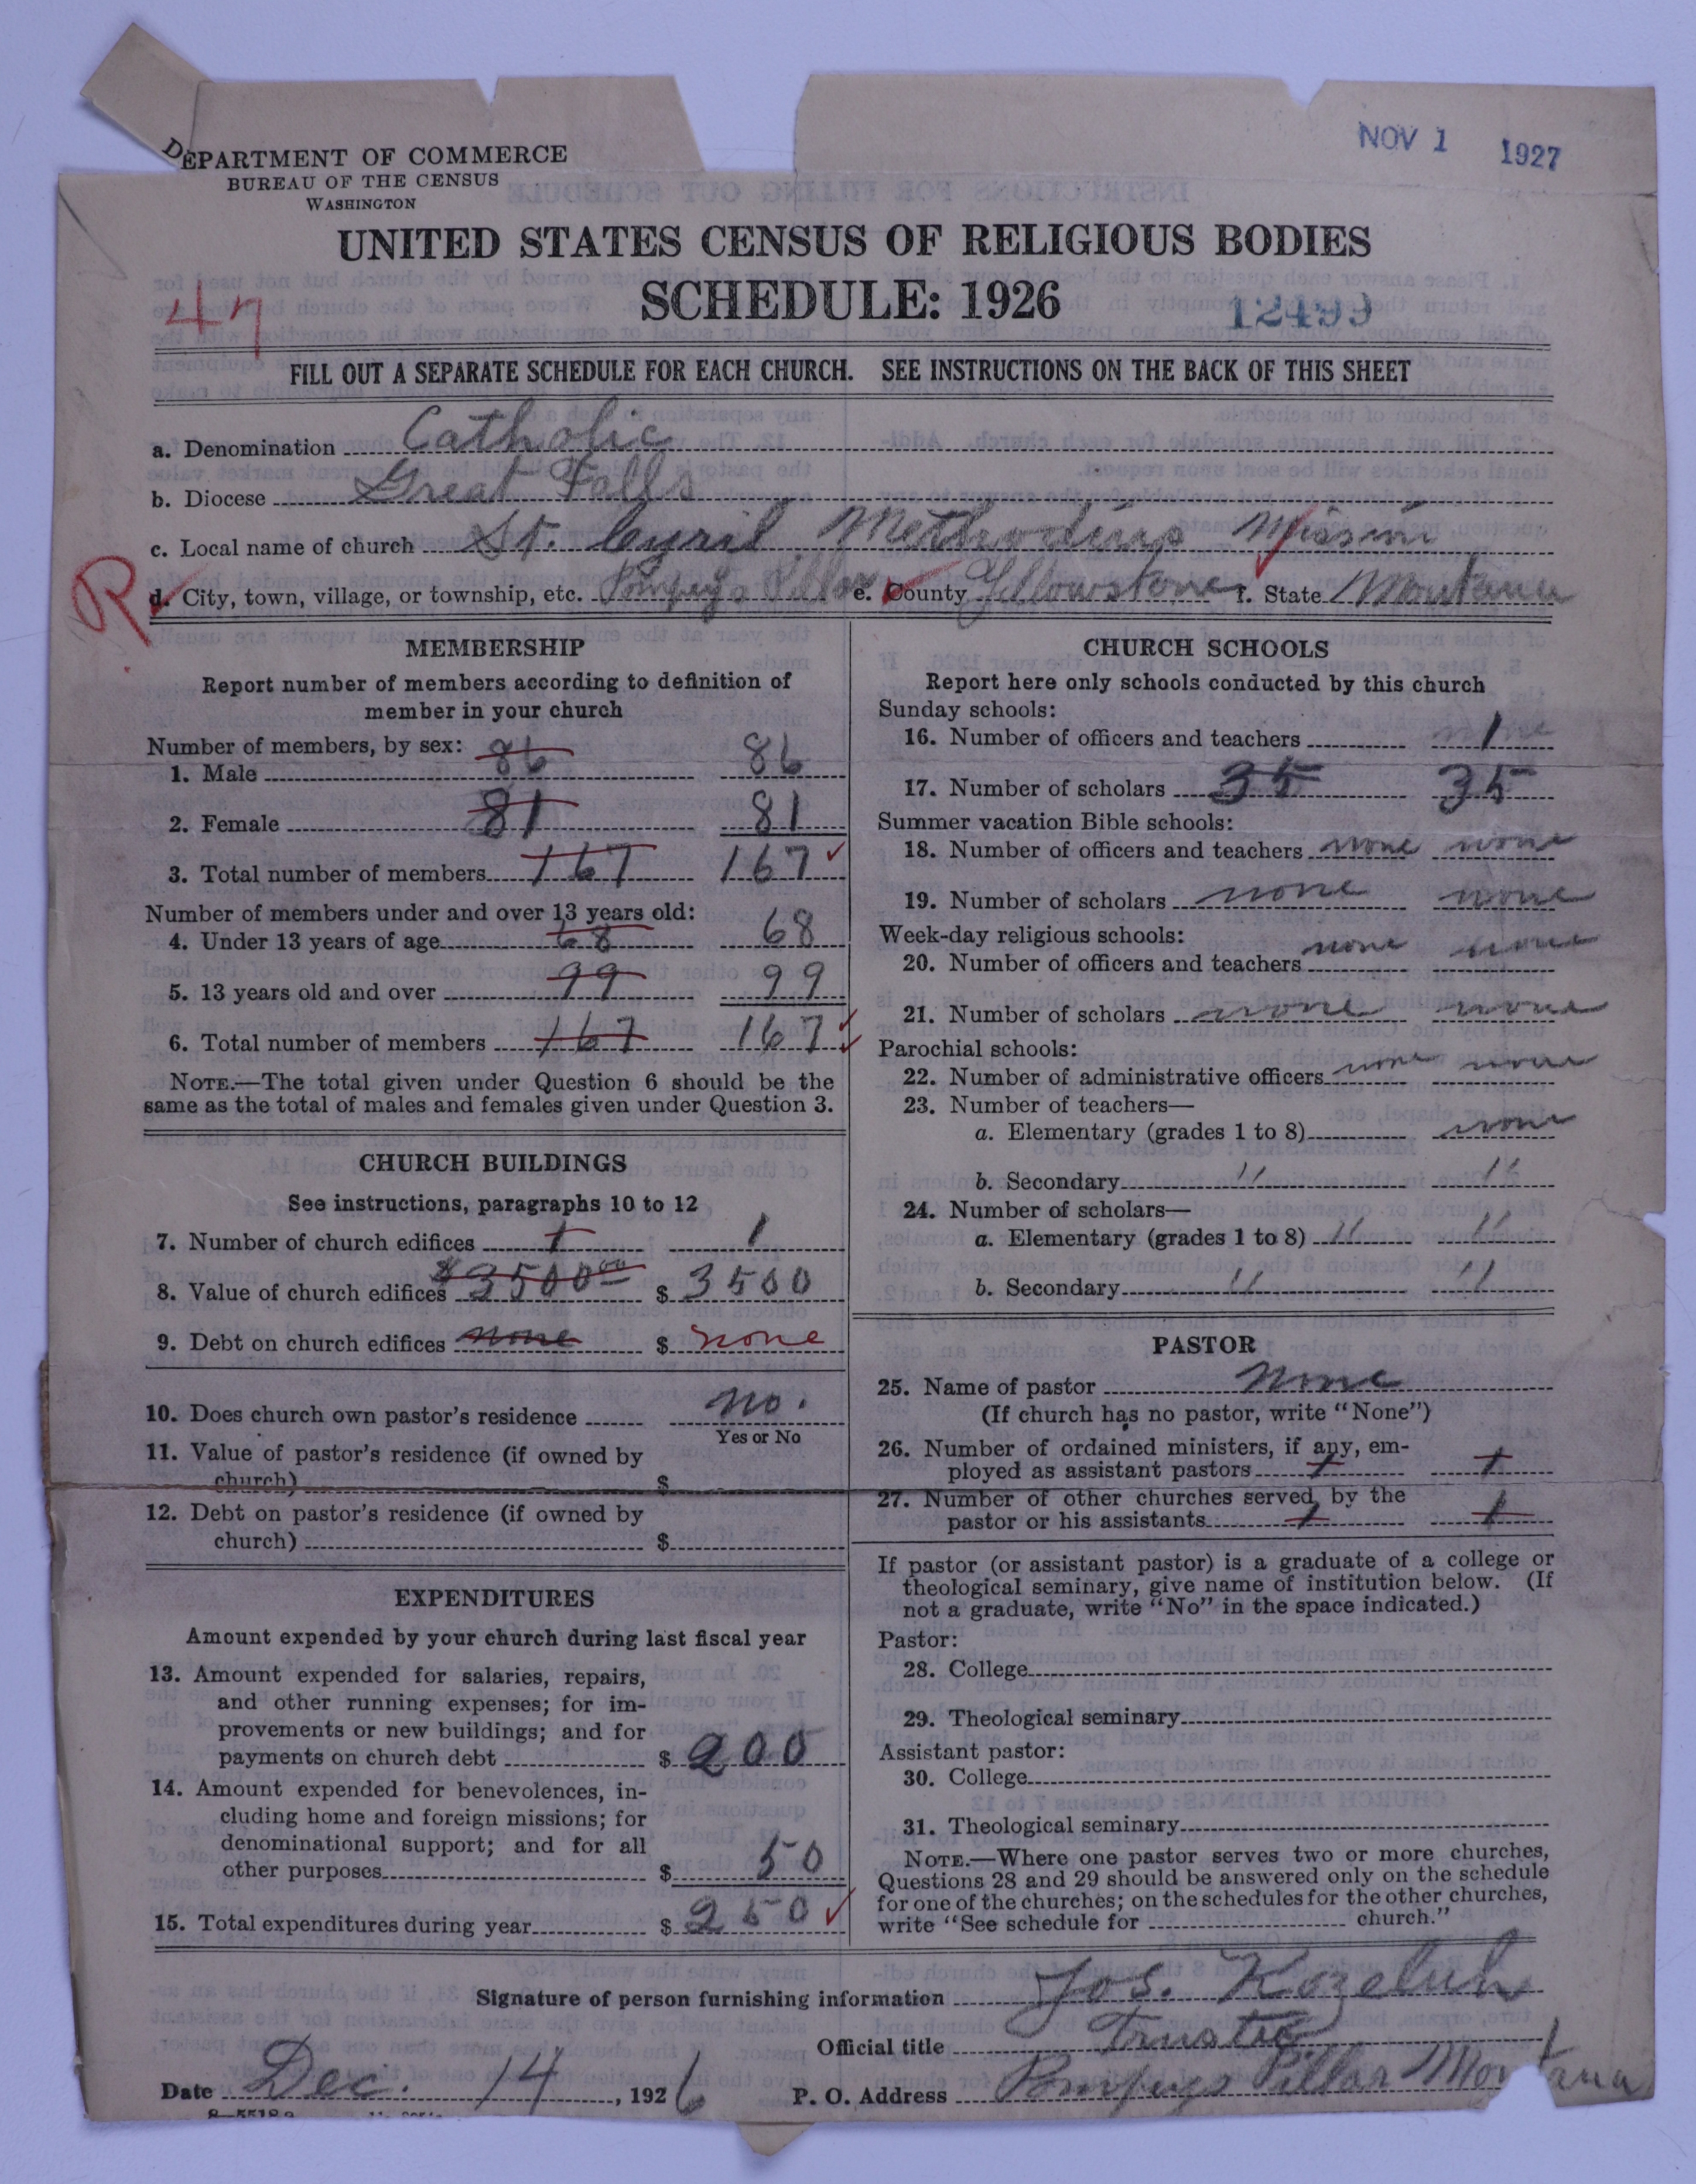 DEPARTMENT OF COMMERCE
BUREAU OF THE CENSUS
WASHINGTON
NOV 1 1927
UNITED STATES CENSUS OF RELIGIOUS BODIES
SCHEDULE: 1926
47
12499
FILL OUT A SEPARATE SCHEDULE FOR EACH CHURCH. SEE INSTRUCTIONS ON THE BACK OF THIS SHEET
a. Denomination Catholic
b. Diocese Great Falls
c. Local name of church St. Cyril Methodius Mission
R
d. City, town, village, or township, etc. Pompeys Pillar e. County Yellowstone f. State Montana
MEMBERSHIP
Report number of members according to definition of
member in your church
Number of members, by sex:
1. Male 86 86
2. Female 81 81
3. Total number of members 167 167
Number of members under and over 13 years old:
4. Under 13 years of age 68 68
5. 13 years old and over 99 99
6. Total number of members 167 167
NOTE.—The total given under Question 6 should be the
same as the total of males and females given under Question 3.
CHURCH BUILDINGS
See instructions, paragraphs 10 to 12
7. Number of church edifices 1 1
8. Value of church edifices $3500.00 $ 3500
9. Debt on church edifices none $ none
10. Does church own pastor's residence no.
Yes or No
11. Value of pastor's residence (if owned by
church) $
12. Debt on pastor's residence (if owned by
church) $
EXPENDITURES
Amount expended by your church during last fiscal year
13. Amount expended for salaries, repairs,
and other running expenses; for im-
provements or new buildings; and for
payments on church debt $ 200
14. Amount expended for benevolences, in-
cluding home and foreign missions; for
denominational support; and for all
other purposes $ 50
15. Total expenditures during year $ 250
CHURCH SCHOOLS
Report here only schools conducted by this church
Sunday schools:
16. Number of officers and teachers 1
17. Number of scholars 35 35
Summer vacation Bible schools:
18. Number of officers and teachers none none
19. Number of scholars none none
Week-day religious schools:
20. Number of officers and teachers none none
21. Number of scholars none none
Parochial schools:
22. Number of administrative officers none none
23. Number of teachers—
a. Elementary (grades 1 to 8) none
b. Secondary " "
24. Number of scholars—
a. Elementary (grades 1 to 8) " "
b. Secondary " "
PASTOR
25. Name of pastor None
(If church has no pastor, write "None")
26. Number of ordained ministers, if any, em-
ployed as assistant pastors 1 1
27. Number of other churches served by the
pastor or his assistants 1 1
If pastor (or assistant pastor) is a graduate of a college or
theological seminary, give name of institution below. (If
not a graduate, write "No" in the space indicated.)
Pastor:
28. College
29. Theological seminary
Assistant pastor:
30. College
31. Theological seminary
NOTE.—Where one pastor serves two or more churches,
Questions 28 and 29 should be answered only on the schedule
for one of the churches; on the schedules for the other churches,
write "See schedule for church."
Signature of person furnishing information Jos. Kozeluh
Official title Trustee
Date Dec. 14, 1926 P. O. Address Pompeys Pillar Montana